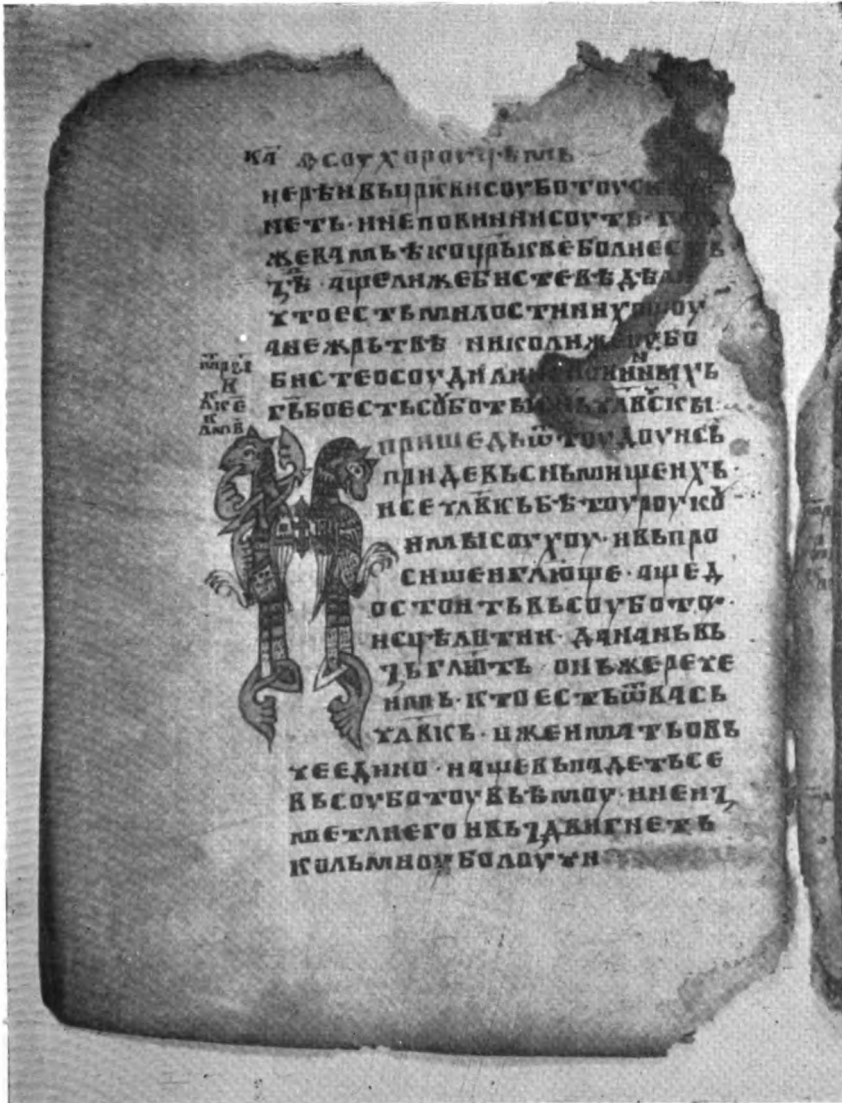 нерѣи въ црккви соуботоу скв
неть · и неповинни соуть · г
же вамъ ѣко црькве боле ес
тъ · аще ли же бисте вѣдѣли
что есть милостини хощоу
а не жрьтвѣ николиже оубо
бисте осоудили неповинныхъ
гь бо есть соуботы чл҃вскы
пришедь ѿтоудоу исъ
приде въ сньмище ихъ ·
и се чл҃вкъ бѣ тоу роукоу
имы соухоу · и въпро
сише и гл҃юще · аще д
остоить въ соуботоу ·
исцѣлити и · да на нь въ
ꙁьгл҃ють онъ же рече
имъ · кто есть ѿ васъ
чл҃вкъ · иже имать овъ
че едино · и аще въпадеть се
въ соуботоу въ ѣмоу · и не иꙁ
мет ли его и въꙁдвигнеть
кольми оубо лоучи